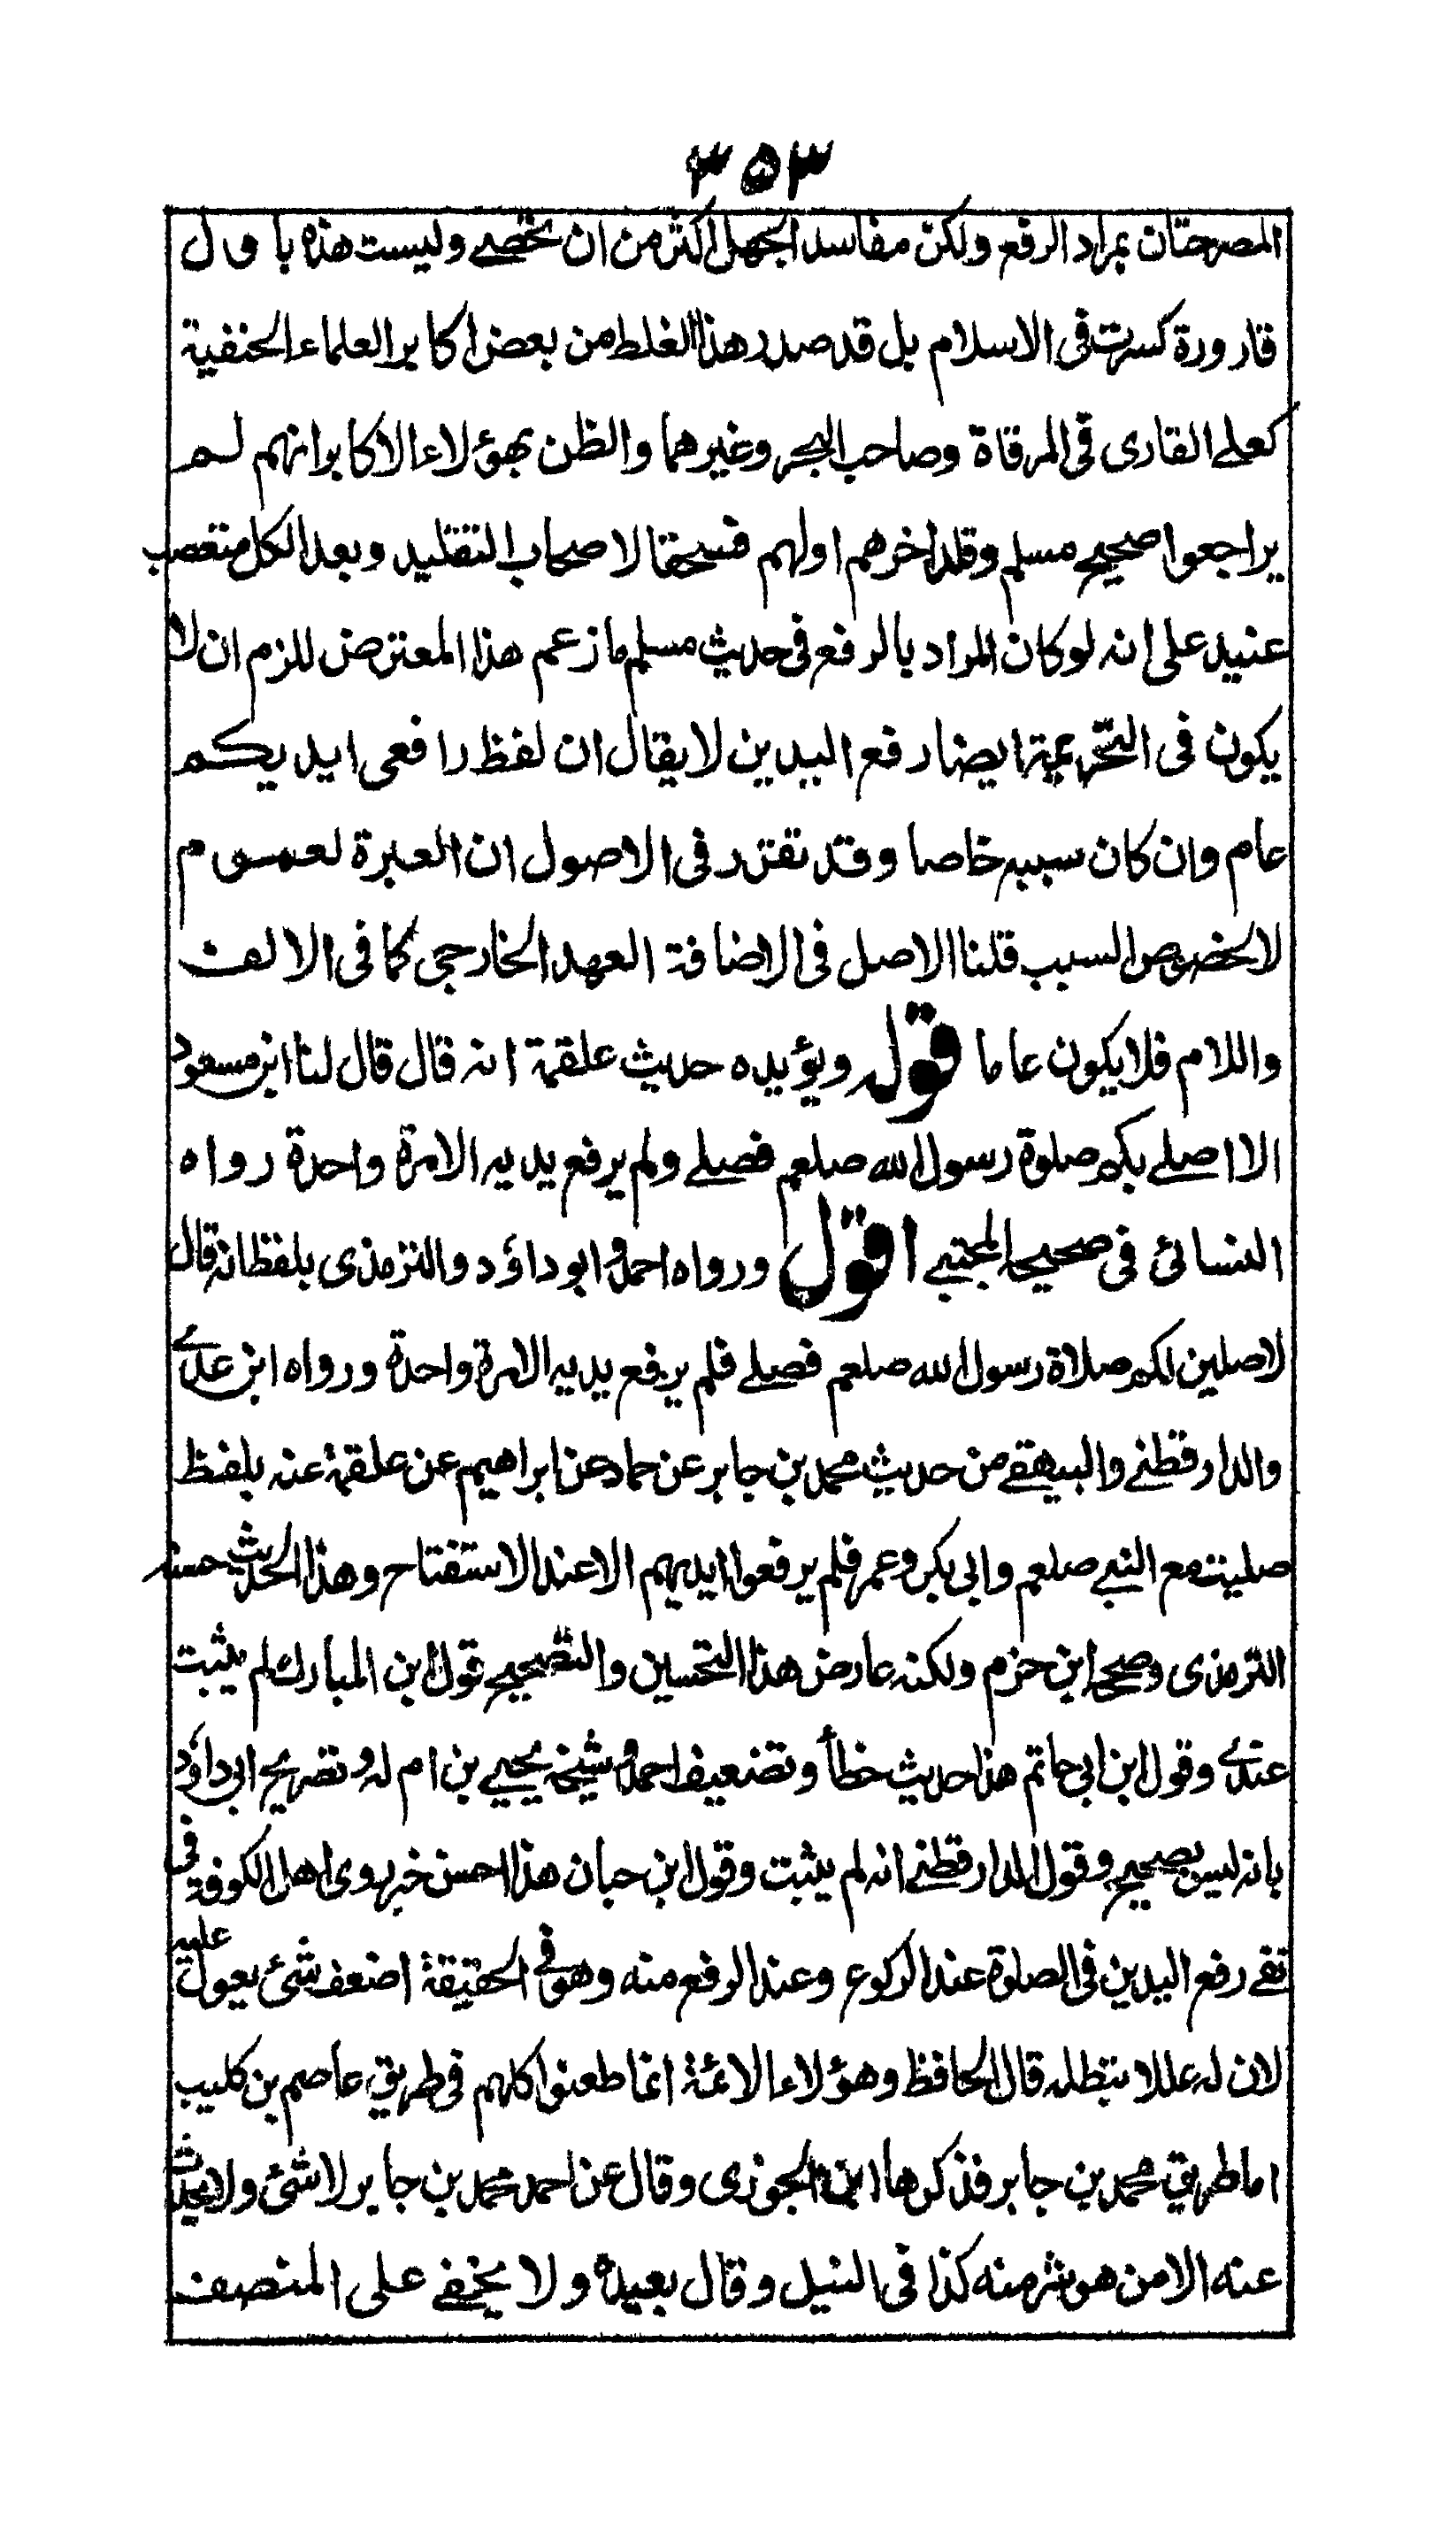 ٣٥٣
المصرحتان بمراد الرفع ولكن مفاسد الجهل اكثر من ان تحصے وليست هذه باول
قارورة كسرت فى الاسلام بل قد صدر هذا الغلط من بعض اكابر العلماء الحنفية
كعلے القارى فى المرقاة وصاحب البحر وغيرهما والظن بهؤلاء الاكابر انهم لم
يراجعوا صحيح مسلم وقلد اخرهم اولهم فسحقا لاصحاب التقليد وبعدا لكل متعصب
عنيد على انه لو كان المراد بالرفع فى حديث مسلم ما زعم هذا المعترض للزم ان لا
يكون فى التحريمة ايضا رفع اليدين لا يقال ان لفظ رافعى ايديكم
عام وان كان سببه خاصا وقد تقرر فى الاصول ان العبرة لعموم
لا لخصوص السبب قلنا الاصل فى الاضافة العهد الخارجى كما فى الالف
واللام فلا يكون عاما قوله ويؤيده حديث علقمة انه قال قال لنا ابن مسعود
الا اصلے بكم صلوة رسول الله صلعم فصلے ولم يرفع يديه الا مرة واحدة رواه
النسائى فى صحيحه المجتبے اقول ورواه احمد وابو داؤد والترمذى بلفظ انه قال
لاصلين لكم صلاة رسول الله صلعم فصلے فلم يرفع يديه الا مرة واحدة ورواه ابن عدے
والدارقطنے والبيهقے من حديث محمد بن جابر عن حماد عن ابراهيم عن علقمة عنه بلفظ
صليت مع النبے صلعم وابى بكر وعمر فلم يرفعوا ايديهم الا عند الاستفتاح وهذا الحديث حسنه
الترمذى وصححه ابن حزم ولكنه عارض هذا التحسين والتصحيح قول ابن المبارك لم يثبت
عندے وقول ابن ابى حاتم هذا حديث خطأ وتضعيف احمد وشيخه يحيے بن ادم له وتصريح ابى داؤد
بانه ليس بصحيح وقول الدارقطنے انه لم يثبت وقول ابن حبان هذا احسن خبر روى اهل الكوفة فى
نفے رفع اليدين فى الصلوة عند الركوع وعند الرفع منه وهو فى الحقيقة اضعف شئ يعول عليه
لان له عللا تبطله قال الحافظ وهؤلاء الائمة انما طعنوا كلهم فى طريق عاصم بن كليب
اما طريق محمد بن جابر فذكرها ابن الجوزى وقال عن احمد محمد بن جابر لا شئ ولا يحدث
عنه الا من هو شر منه كذا فى النيل وقال بعيده ولا يخفے على المنصف